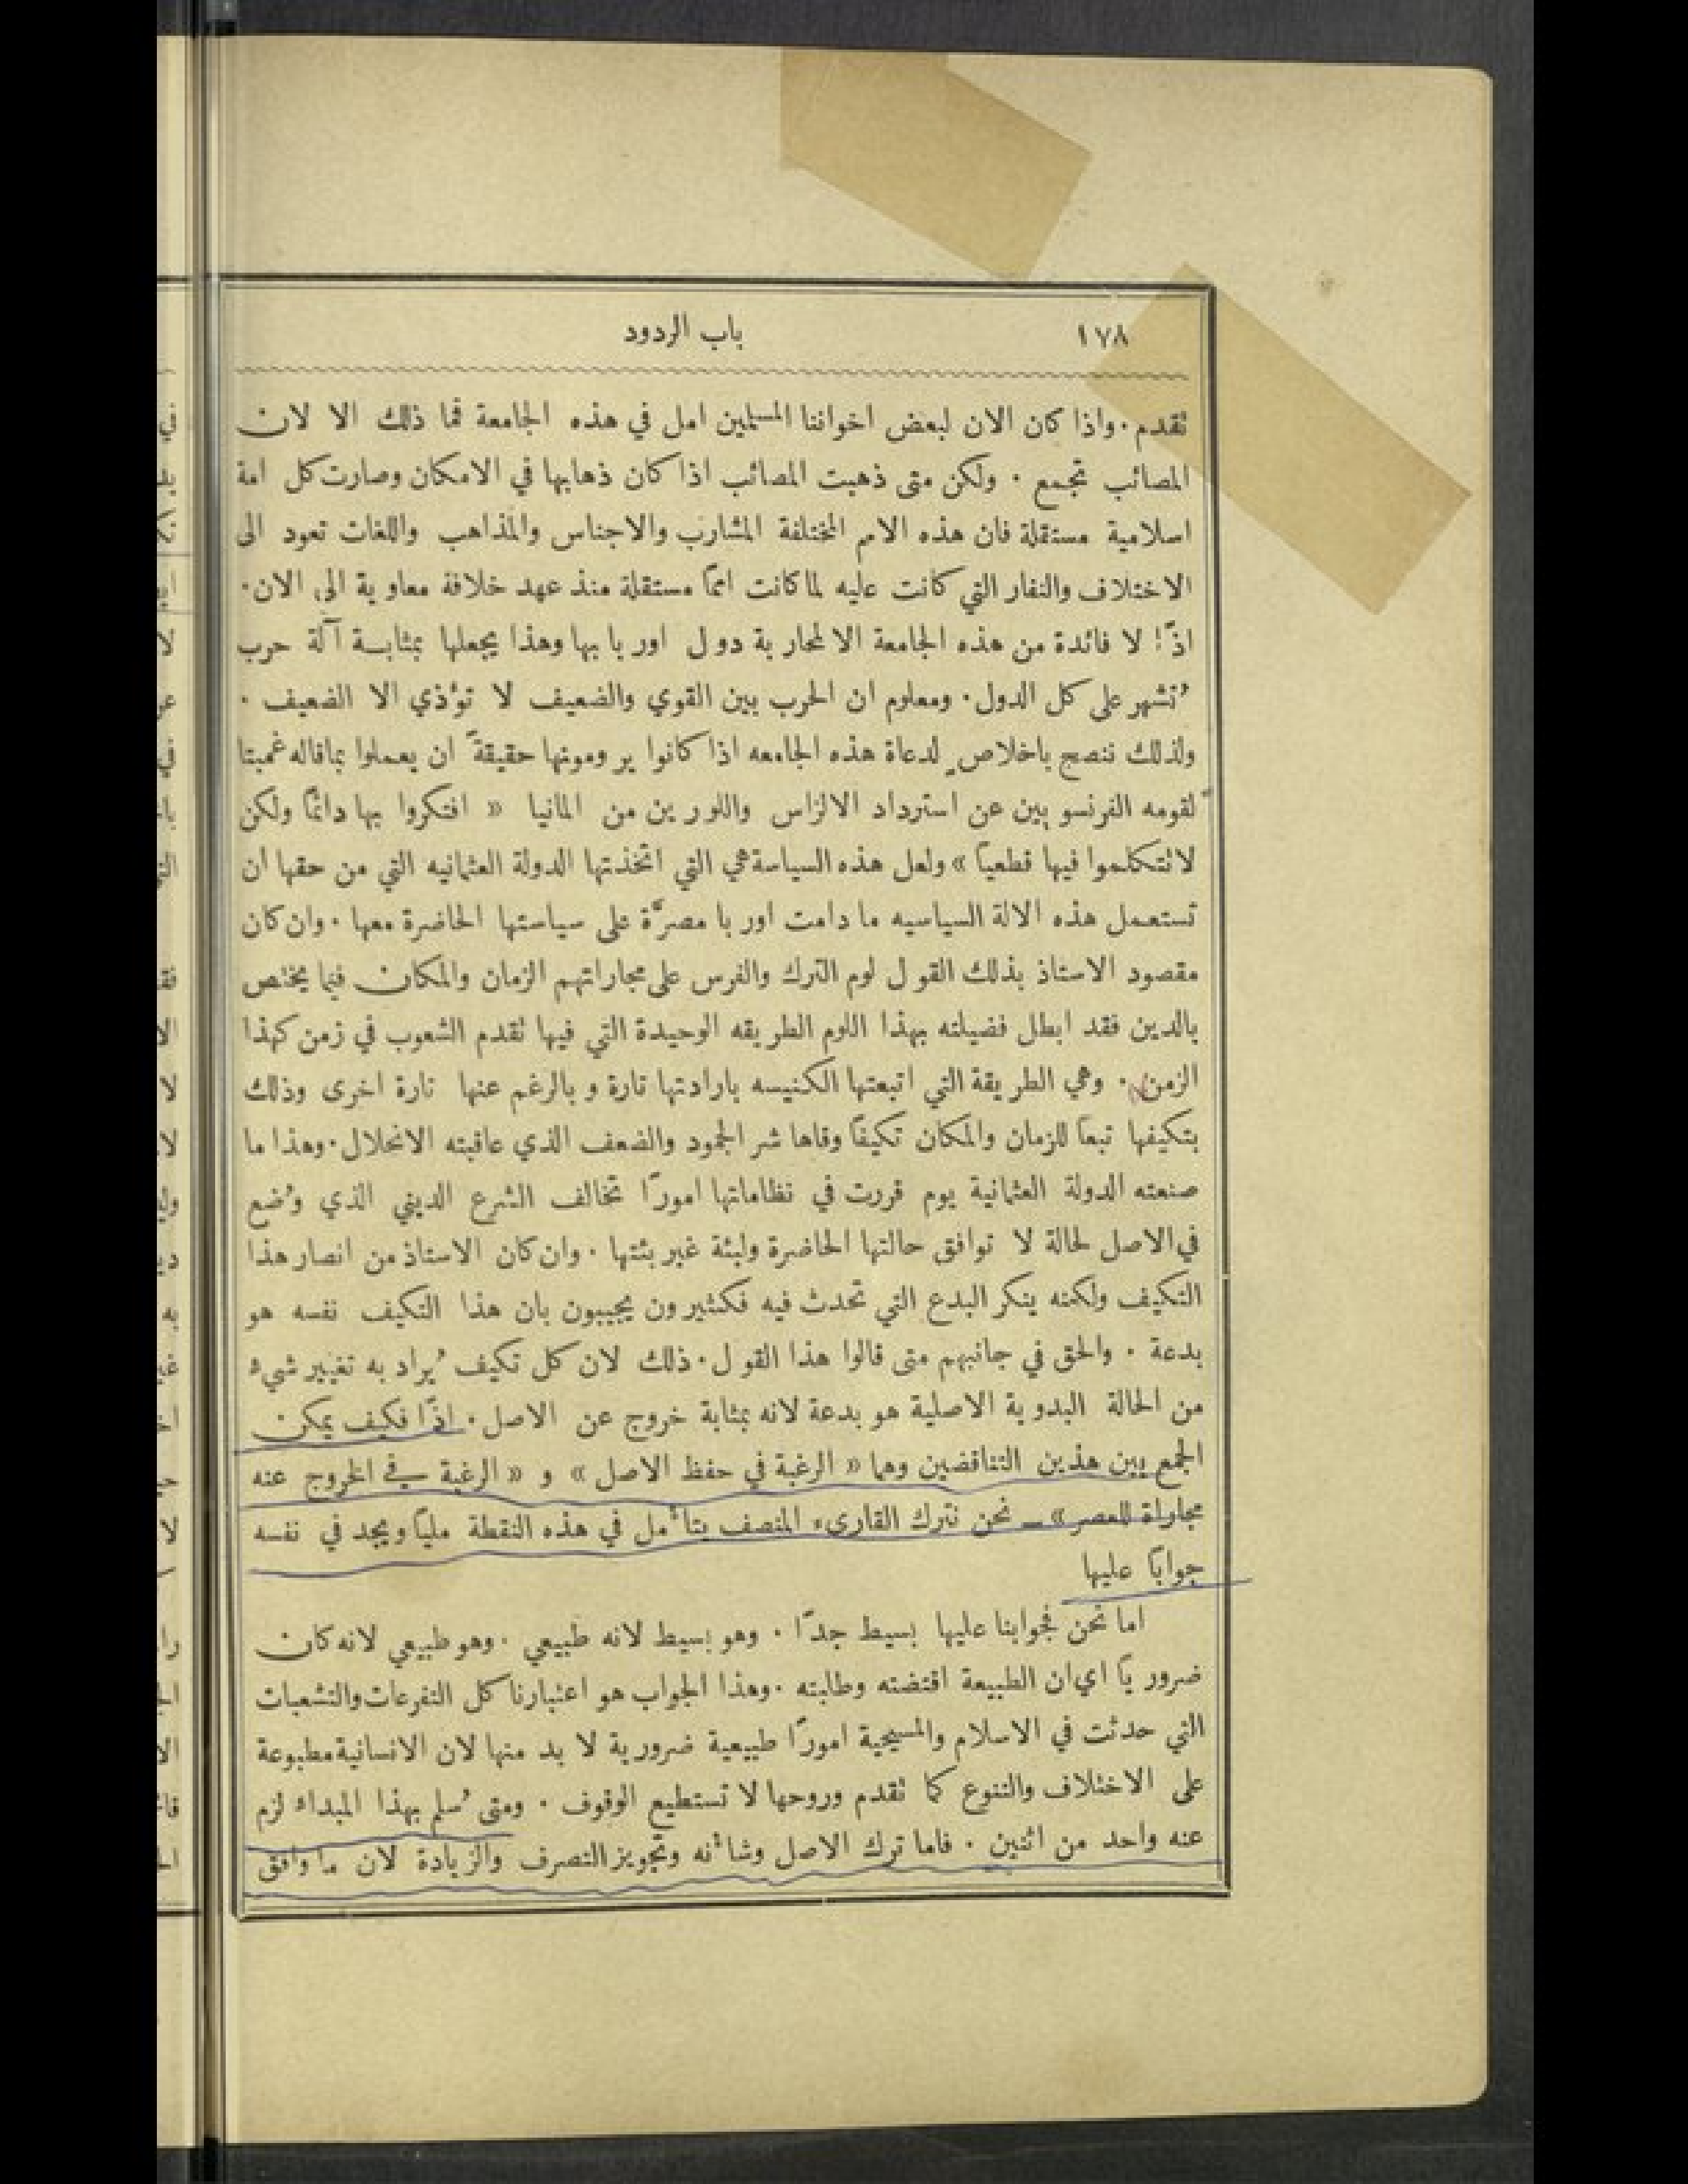 ١٧٨
باب الردود
تقدم . واذا كان الان لبعض اخواننا المسلمين امل في هذه الجامعة فما ذلك الا لان
المصائب تجمع . ولكن متى ذهبت المصائب اذا كان ذهابها في الامكان وصارت كل امة
اسلامية مستقلة فان هذه الامم المختلفة المشارب والاجناس والمذاهب واللغات تعود الى
الاختلاف والنفار التي كانت عليه لما كانت امما مستقلة منذ عهد خلافة معاوية الى الان .
اذًا لا فائدة من هذه الجامعة الا لمحاربة دول اوربا بها وهذا يجعلها بمثابة آلة حرب
تُشهر على كل الدول . ومعلوم ان الحرب بين القوي والضعيف لا تؤذي الا الضعيف .
ولذلك ننصح باخلاصٍ لدعاة هذه الجامعه اذا كانوا يرومونها حقيقةً ان يعملوا بما قاله غمبتا
لقومه الفرنسويين عن استرداد الالزاس واللورين من المانيا « افتكروا بها دائمًا ولكن
لا تتكلموا فيها قطعيًا » ولعل هذه السياسة هي التي اتخذتها الدولة العثمانيه التي من حقها ان
تستعمل هذه الالة السياسيه ما دامت اوربا مصرَّة على سياستها الحاضرة معها . وان كان
مقصود الاستاذ بذلك القول لوم الترك والفرس على مجاراتهم الزمان والمكان فيما يختص
بالدين فقد ابطل فضيلته بهذا اللوم الطريقه الوحيدة التي فيها تقدم الشعوب في زمن كهذا
الزمن . وهي الطريقة التي اتبعتها الكنيسه بارادتها تارة وبالرغم عنها تارة اخرى وذلك
بتكيفها تبعًا للزمان والمكان تكيفًا وقاها شر الجمود والضعف الذي عاقبته الانحلال . وهذا ما
صنعته الدولة العثمانية يوم قررت في نظاماتها امورًا تخالف الشرع الديني الذي وُضع
في الاصل لحالة لا توافق حالتها الحاضرة ولبئة غير بئتها . وان كان الاستاذ من انصار هذا
التكيف ولكنه ينكر البدع التي تحدث فيه فكثيرون يجيبون بان هذا التكيف نفسه هو
بدعة . والحق في جانبهم متى قالوا هذا القول . ذلك لان كل تكيف يُراد به تغيير شيء
من الحالة البدوية الاصلية هو بدعة لانه بمثابة خروج عن الاصل . اذًا فكيف يمكن
الجمع بين هذين التناقضين وهما « الرغبة في حفظ الاصل » و « الرغبة في الخروج عنه
مجاراة للعصر » — نحن نترك القارىء المنصف يتأمل في هذه النقطة مليًا ويجد في نفسه
جوابًا عليها
اما نحن فجوابنا عليها بسيط جدًا . وهو بسيط لانه طبيعي . وهو طبيعي لانه كان
ضروريًا اي ان الطبيعة اقتضته وطلبته . وهذا الجواب هو اعتبارنا كل التفرعات والتشعبات
التي حدثت في الاسلام والمسيحية امورًا طبيعية ضرورية لا بد منها لان الانسانية مطبوعة
على الاختلاف والتنوع كما تقدم وروحها لا تستطيع الوقوف . ومتى سُلم بهذا المبداء لزم
عنه واحد من اثنين . فاما ترك الاصل وشأنه وتجويز التصرف والزيادة لان ما وافق